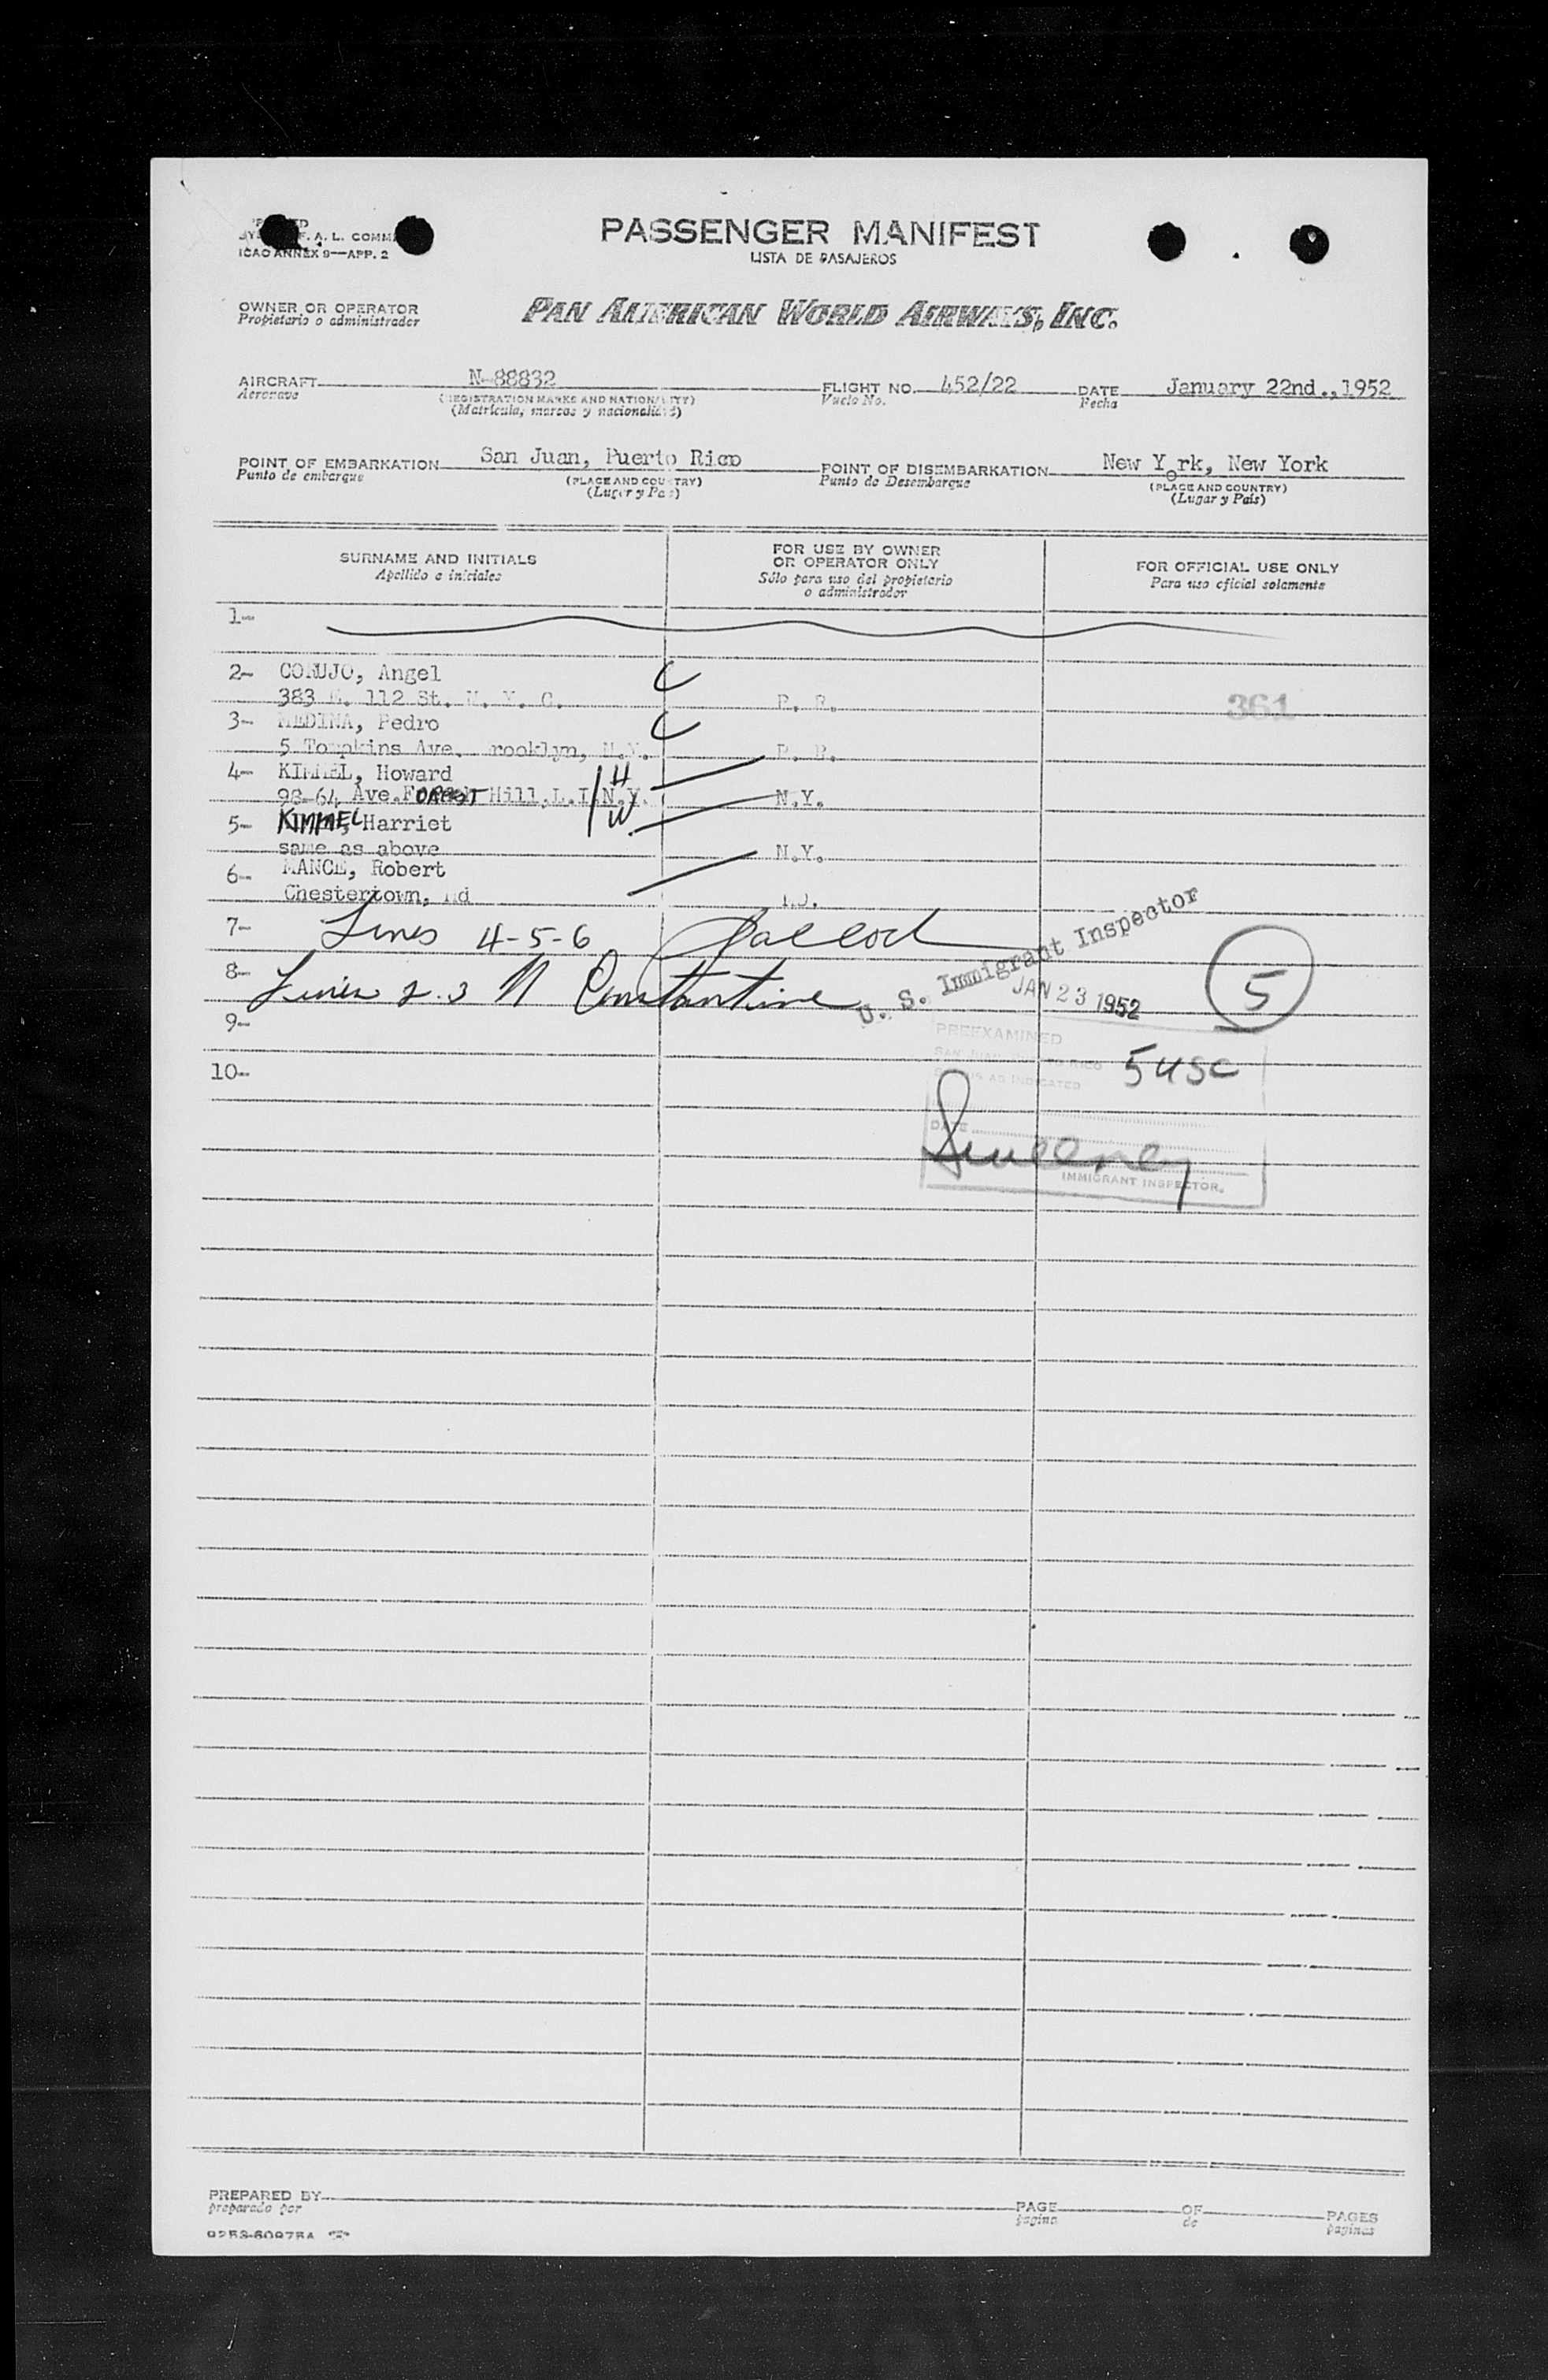 F. A. L. COMM
ICAO ANNEX 9—APP. 2
PASSENGER MANIFEST
LISTA DE PASAJEROS
OWNER OR OPERATOR
Propietario o administrador
PAN AMERICAN WORLD AIRWAYS, INC.
AIRCRAFT N-88832 FLIGHT NO. 452/22 DATE January 22nd.,1952
Aeronave (REGISTRATION MARKS AND NATIONALITY) Vuelo No. Fecha
(Matrícula, marcas y nacionalidad)
POINT OF EMBARKATION San Juan, Puerto Rico POINT OF DISEMBARKATION New York, New York
Punto de embarque (PLACE AND COUNTRY) Punto de Desembarque (PLACE AND COUNTRY)
(Lugar y País) (Lugar y País)
SURNAME AND INITIALS FOR USE BY OWNER OR OPERATOR ONLY FOR OFFICIAL USE ONLY
Apellido e iniciales Sólo para uso del propietario o administrador Para uso oficial solamente
1-
2- CORUJO, Angel C
383 E. 112 St. N. Y. C. P. R. 361
3- MEDINA, Pedro C
5 Tompkins Ave. Brooklyn, N.Y. P. R.
4- KIMMEL, Howard H
98-64 Ave. FOREST Hill, L.I.N.Y. N.Y.
5- KIMMEL, Harriet W
same as above N.Y.
6- MANCE, Robert
Chestertown, Md
7- Lines 4-5-6
8- Lines 2.3 N Constantine
U. S. Immigrant Inspector
JAN 23 1952
5
9-
PREEXAMINED
SAN JUAN PUERTO RICO
STATUS AS INDICATED
5 USC
10-
DATE
Sweeney
IMMIGRANT INSPECTOR.
PREPARED BY PAGE OF PAGES
preparado por página de páginas
9253-60975A